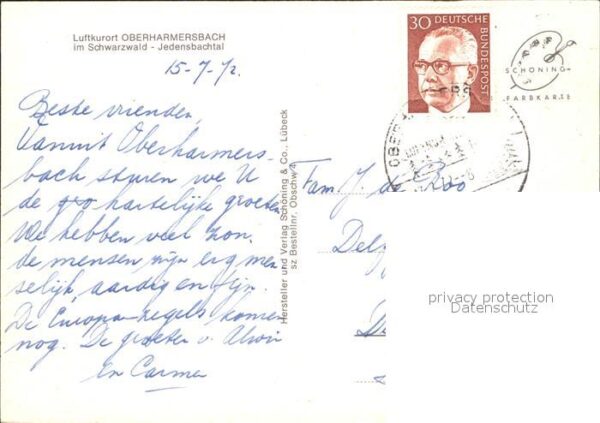 Luftkurort OBERHARMERSBACH
im Schwarzwald - Jedensbachtal
15-7-72.
Beste vrienden,
Vanuit Oberharmers-
bach sturen we U
de hartelijke groeten
We hebben veel zon.
de mensen zijn erg men-
selijk, aardig en fijn.
De Europa-zegels komen
nog. De groeten v.
en Carmen
Hersteller und Verlag Schöning & Co., Lübeck
sz Bestellnr. Obschw
30 DEUTSCHE
BUNDESPOST
SCHÖNING-
FARBKARTE
Fam. J. de Roo
privacy protection
Datenschutz